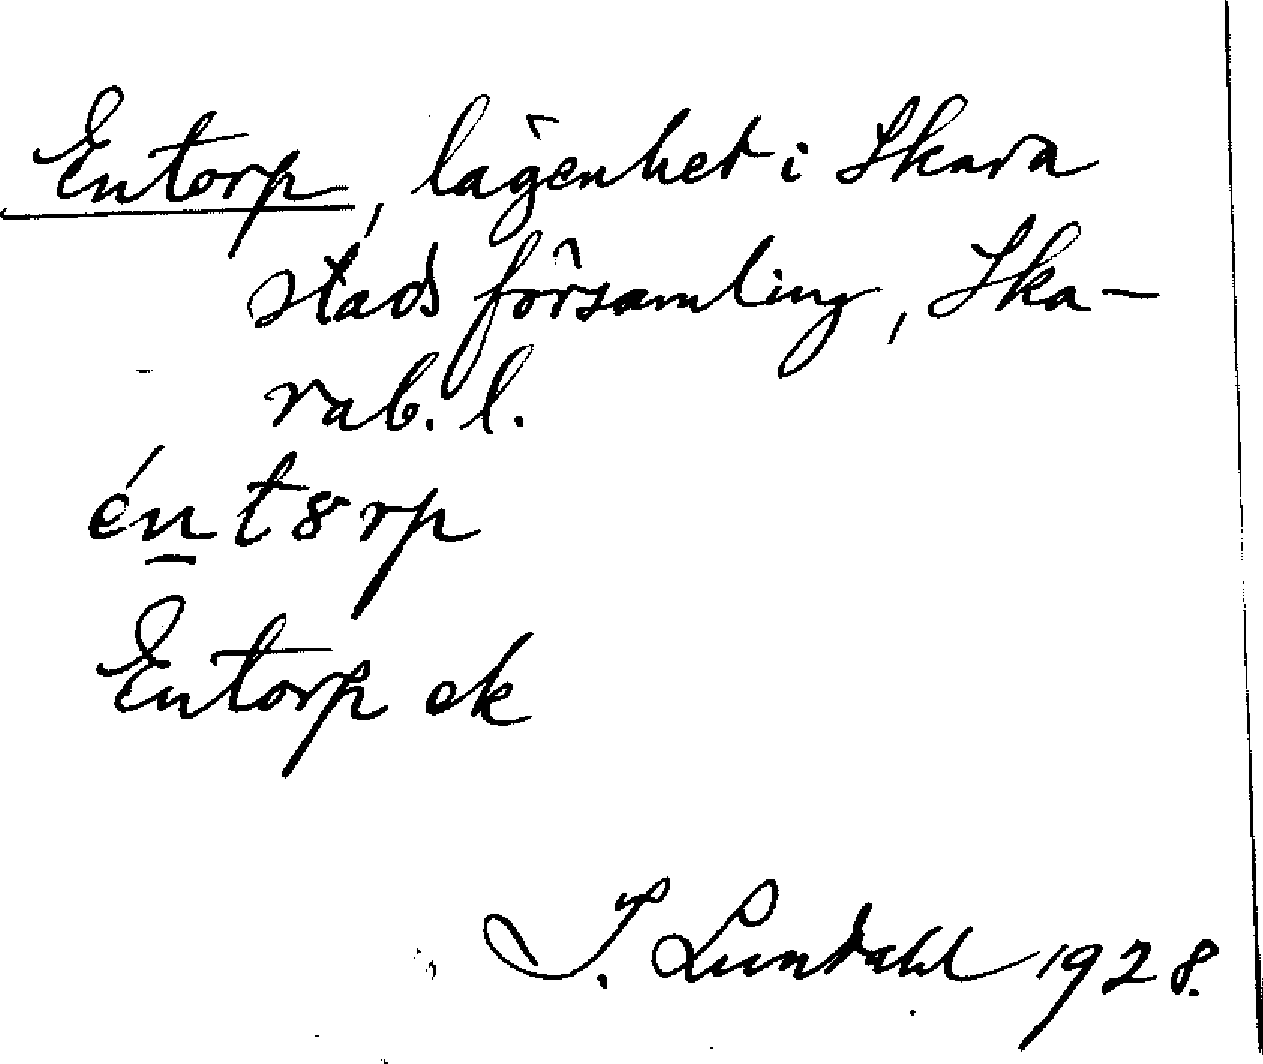 Entorp, lägenhet i Skara
stads församling, Ska-
rab. l.
én̲t8rp
Entorp ek
I. Lundahl 1928.